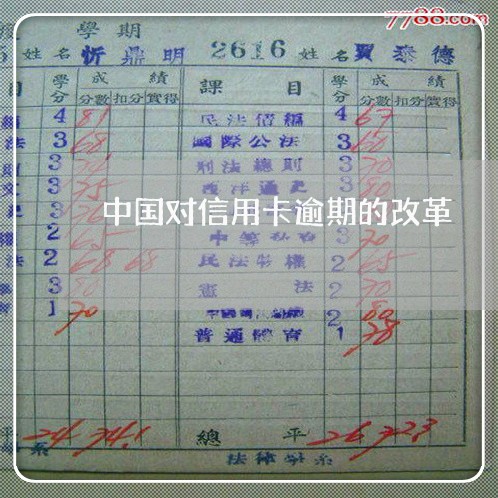 7788.com
學期
姓名 忻鼎明 2616 姓名 賈泰德
目 學分 成績 課目 學分 成績
分數 扣分 實得 分數 扣分 實得
4 81 民法債編 4 67
法 3 68 國際公法 3 60
3 刑法總則 3 70
文 3 75 西洋通史 3 80
中国对信用卡逾期的改革
2 65 3 70
法 2 68 68 民法物權 2 65
3 80 憲法 2 70
1 70 2 80
普通體育 1 78
平 24 74.1 總平 26 72.3
系 法律學系